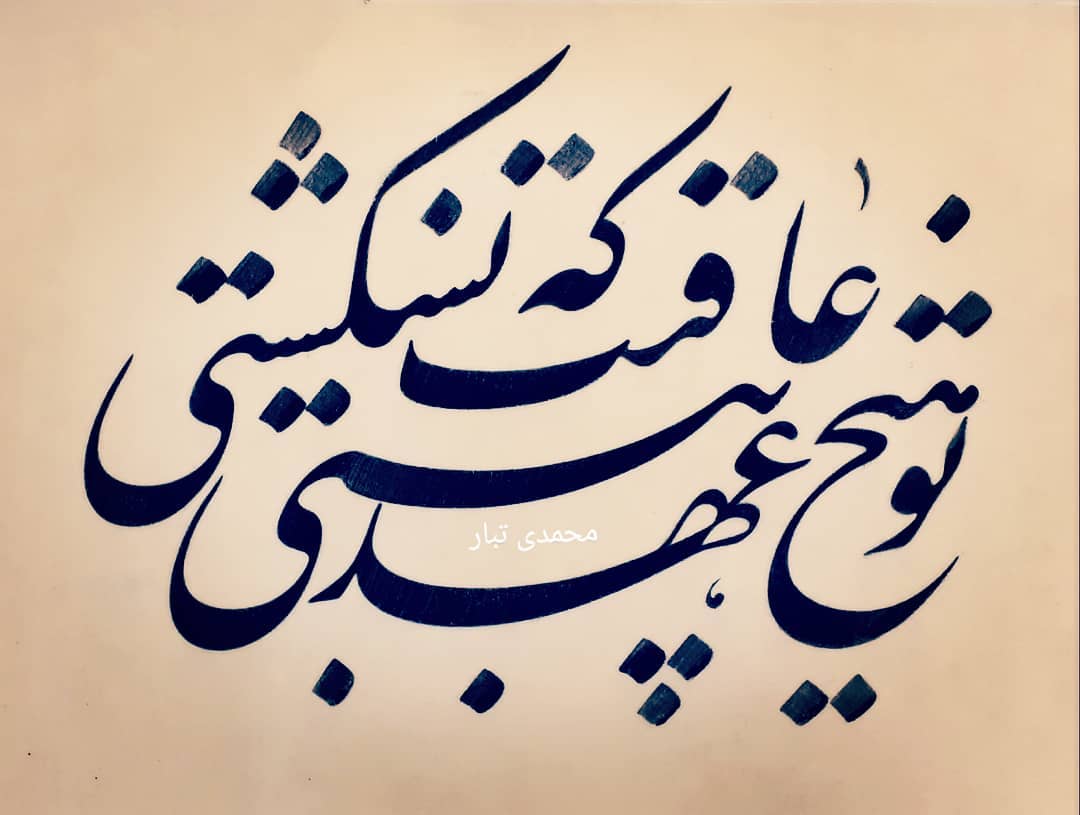 تو هیچ عهد نبستی که عاقبت نشکستی
محمدی تبار